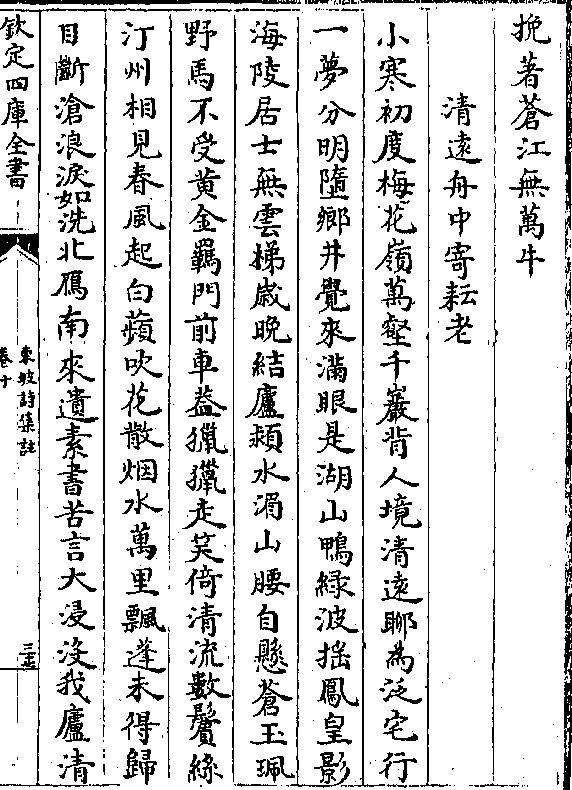 挽著蒼江無萬牛
清遠舟中寄耘老
小寒初度梅花嶺萬壑千巖背人境清遠聊為泛宅行
一夢分明墮鄉井覺來滿眼是湖山鴨綠波揺鳳皇影
海陵居士無雲梯歲晩結廬潁水湄山腰自懸蒼玉珮
野馬不受黄金羈門前車葢獵獵走笑倚清流數鬢絲
汀州相見春風起白蘋吹花散烟水萬里飄蓬未得歸
目斷滄浪淚如洗北鴈南來遺素書苦言大浸没我廬清
欽定四庫全書
東坡詩集註
卷十
三十五